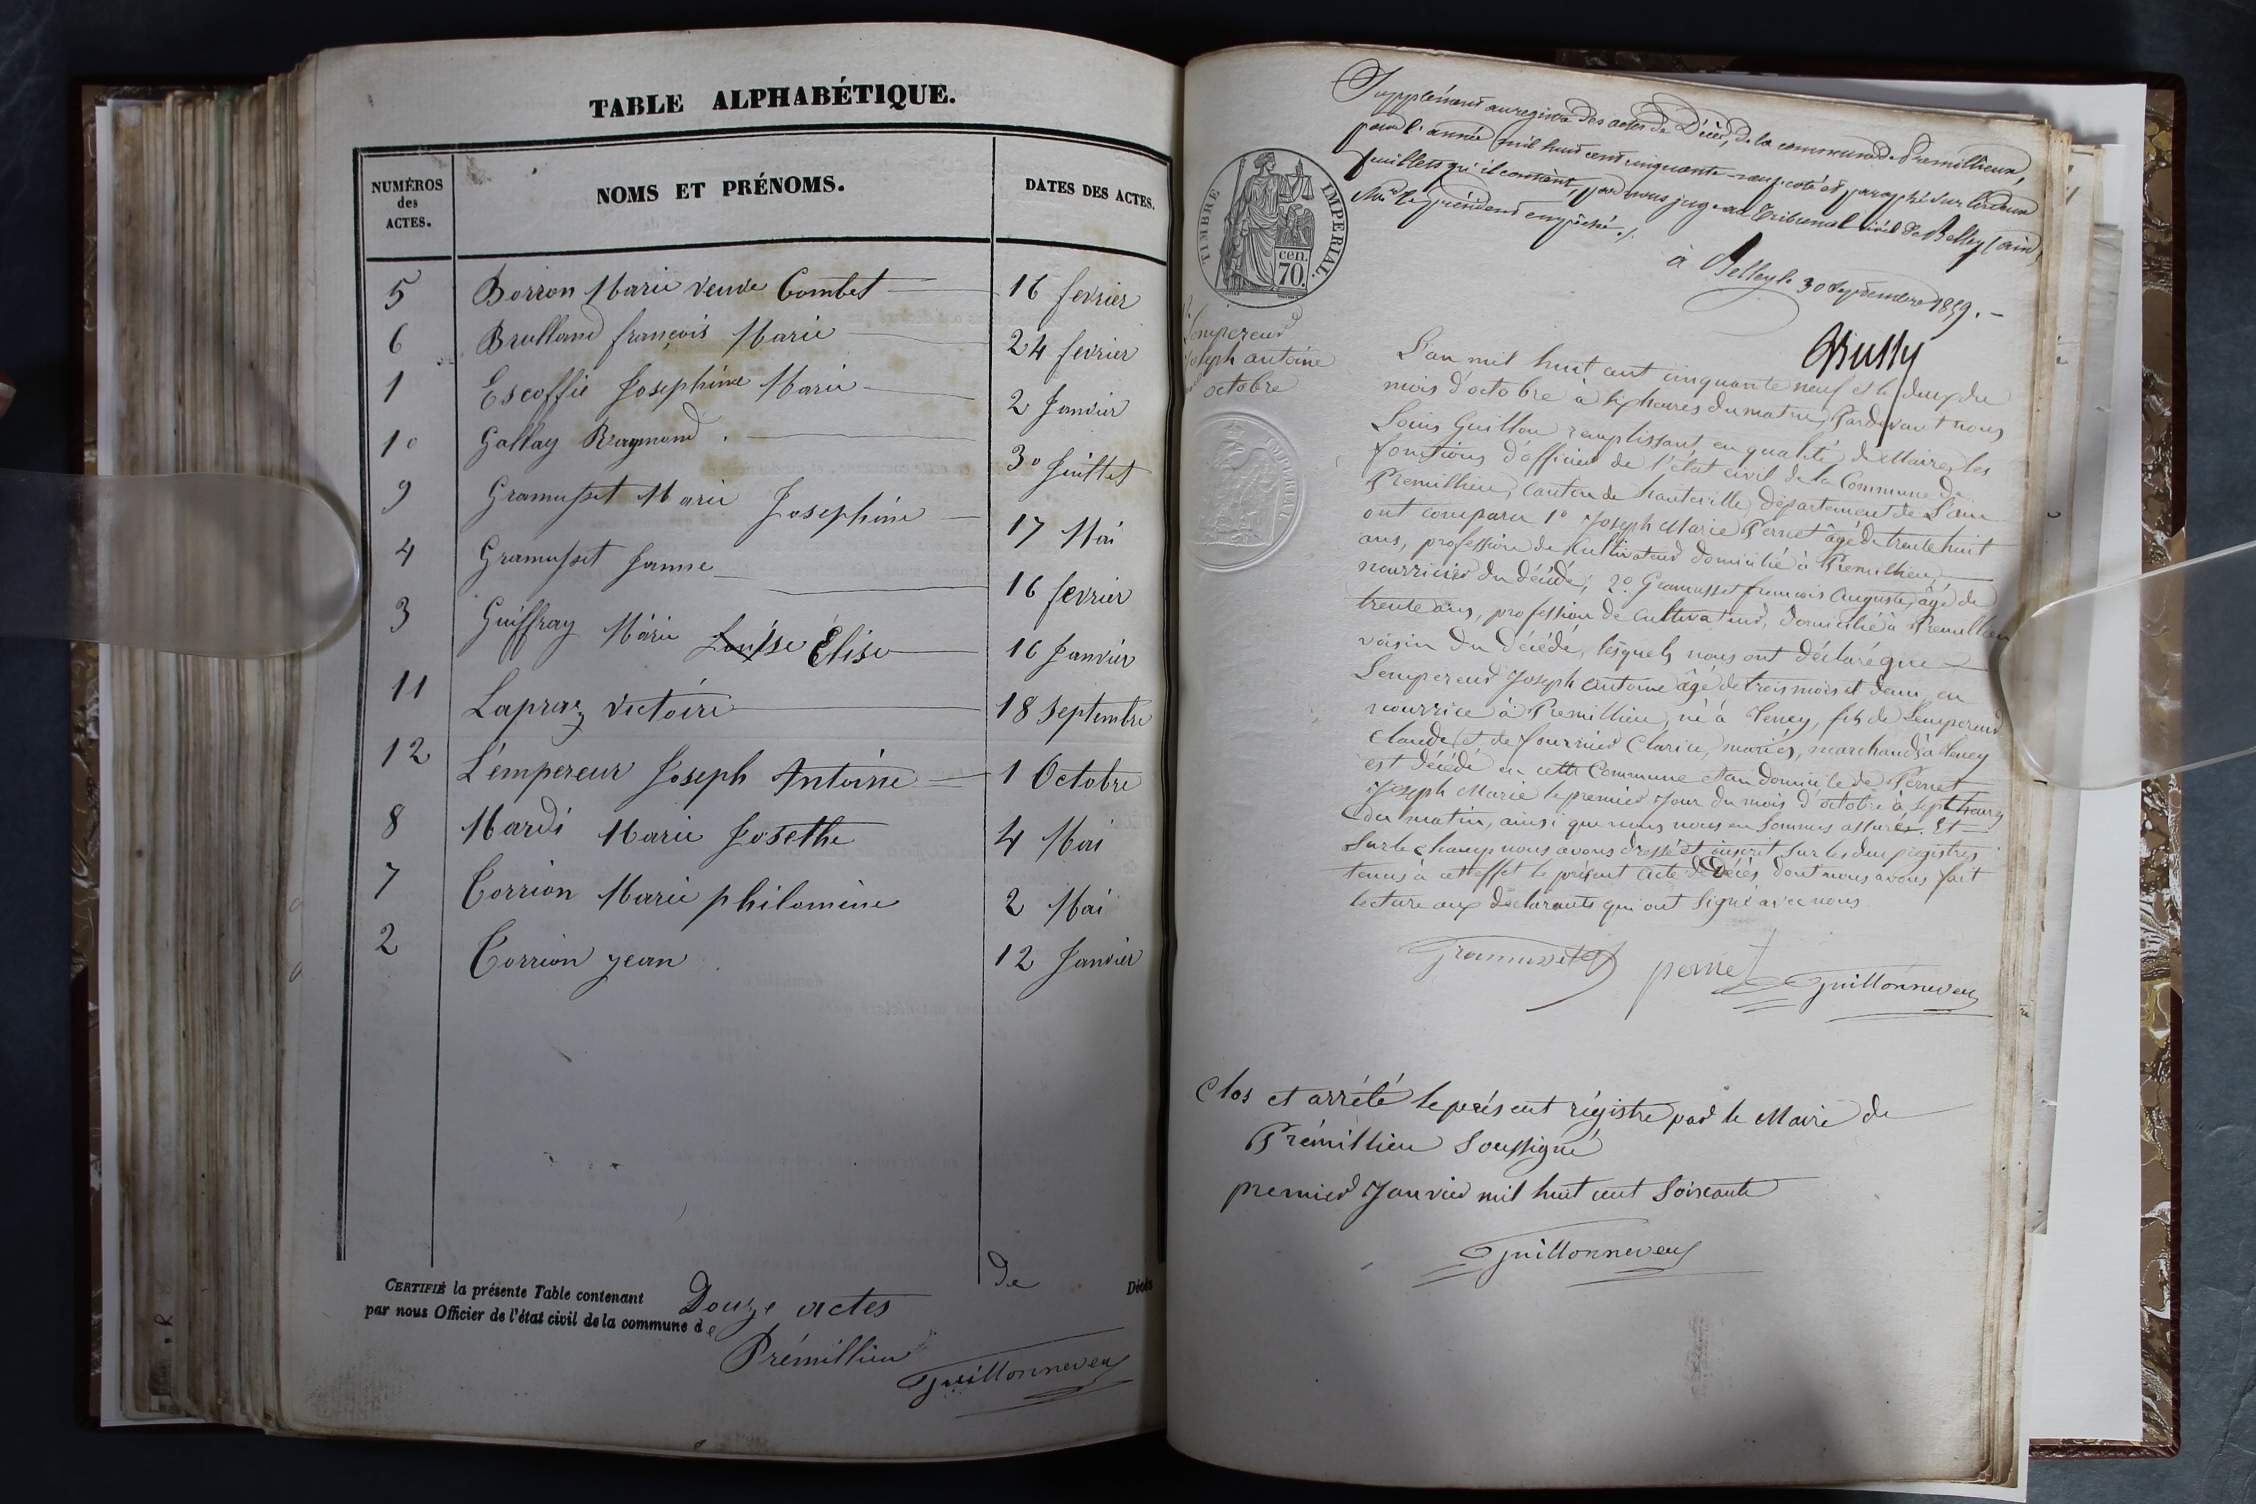 TABLE ALPHABÉTIQUE.
NUMÉROS des ACTES. NOMS ET PRÉNOMS. DATES DES ACTES.
5 Borron Marie veuve Combet 16 fevrier
6 Brulland françois Marie 24 fevrier
1 Escoffié Josephine Marie 2 Janvier
10 Gallay Raymond. 30 Juillet
9 Gramusset Marie Josephine 17 Mai
4 Gramusset Jeanne 16 fevrier
3 Guiffray Marie Louise Élise 16 Janvier
11 Lapraz victoire 18 Septembre
12 L'empereur Joseph Antoine 1 Octobre
8 Mardi Marie Josethe 4 Mai
7 Corrion Marie philomène 2 Mai
2 Corrion jean 12 Janvier
CERTIFIÉ la présente Table contenant Douze actes de Décès
par nous Officier de l'état civil de la commune de
Prémillieu
Guillonneveu
Supplément au registre des actes de Décès, de la commune de Premillieux,
pour l'année mil huit cent cinquante-neuf, coté et paraphé sur les deux
feuillets qu'il contient, par nous juge au Tribunal civil de Belley (ain)
Mr le président empêché./.
à Belley le 30 Septembre 1859.-
Bussy
TIMBRE IMPERIAL.
cen.
70.
Lempereur
Joseph antoine
octobre
IMPERIAL
L'an mil huit cent cinquante neuf et le deux du
mois d'octobre à six heures du matin, Pardevant nous
Louis Guillon remplissant en qualité de Maire, les
fonctions d'officier de l'état civil de la Commune de
Premillieu, Canton de hauteville, département de L'ain
ont comparu 1o Joseph Marie Pernet âgé de trente huit
ans, profession de Cultivateur domicilié à Premillieu,
nourricier du décédé; 2o. Gramusset francois Auguste, âgé de
trente ans, profession de Cultivateur, domicilié à Premillieu
voisin du décédé, lesquels nous ont déclaré que
Lempereur Joseph Antoine âgé de trois mois et demi, en
nourrice à Premillieu, né à Tenay, fils de Lempereur
Claude et de fournier Clarice, mariés, marchands à Tenay
est décédé en cette Commune et au domicile de Pernet
Joseph Marie le premier jour du mois d'octobre à sept heures
du matin, ainsi que nous nous en sommes assurés. Et
Sur le champ nous avons dressé et inscrit sur les deux registres
tenus à cet effet le présent acte de Décès dont nous avons fait
lecture aux déclarants qui ont signé avec nous
Gramusset pernet Guillonneveu
Clos et arrêté le présent régistre par le Maire de
Prémillieu Soussigné
premier Janvier mil huit cent Soixante
Guillonneveu